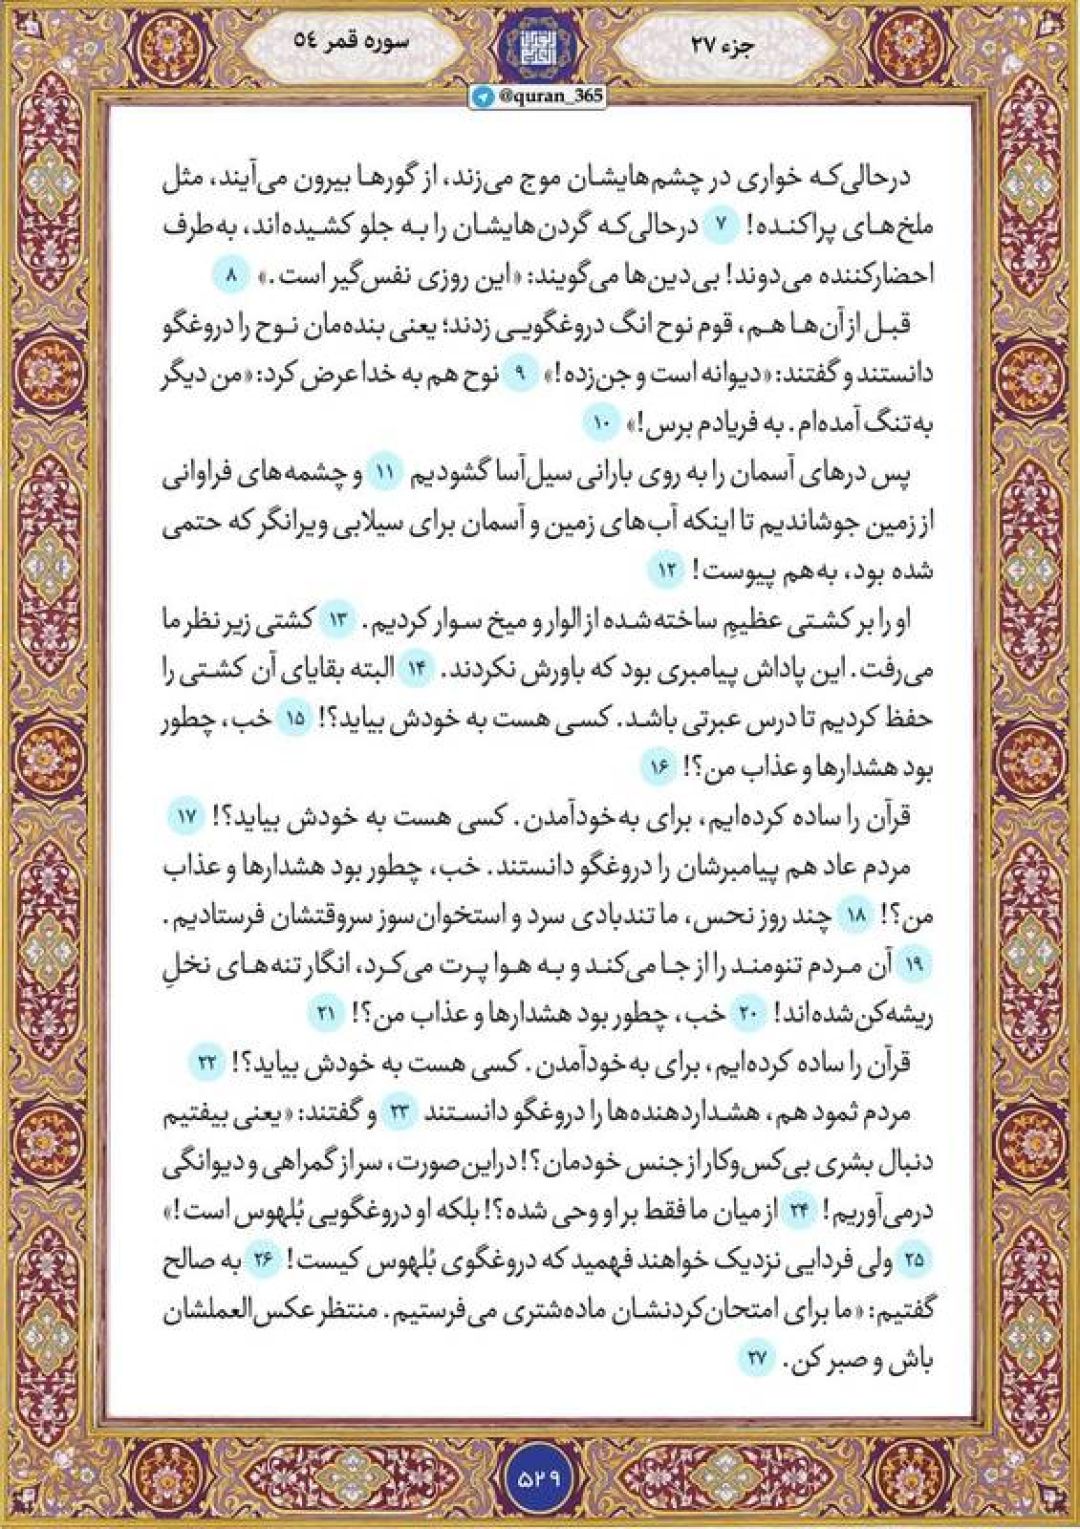 جزء ۲۷
سوره قمر ٥٤
@quran_365
درحالی‌که خواری در چشم‌هایشان موج می‌زند، از گورها بیرون می‌آیند، مثل
ملخ‌های پراکنده! ۷ درحالی‌که گردن‌هایشان را به جلو کشیده‌اند، به‌طرف
احضارکننده می‌دوند! بی‌دین‌ها می‌گویند: «این روزی نفس‌گیر است.» ۸
قبل از آن‌ها هم، قوم نوح انگ دروغگویی زدند؛ یعنی بنده‌مان نوح را دروغگو
دانستند و گفتند: «دیوانه است و جن‌زده!» ۹ نوح هم به خدا عرض کرد: «من دیگر
به‌تنگ آمده‌ام. به فریادم برس!» ۱۰
پس درهای آسمان را به روی بارانی سیل‌آسا گشودیم ۱۱ و چشمه‌های فراوانی
از زمین جوشاندیم تا اینکه آب‌های زمین و آسمان برای سیلابی ویرانگر که حتمی
شده بود، به‌هم پیوست! ۱۲
او را بر کشتی عظیمِ ساخته‌شده از الوار و میخ سوار کردیم. ۱۳ کشتی زیر نظر ما
می‌رفت. این پاداش پیامبری بود که باورش نکردند. ۱۴ البته بقایای آن کشتی را
حفظ کردیم تا درس عبرتی باشد. کسی هست به خودش بیاید؟! ۱۵ خب، چطور
بود هشدارها و عذاب من؟! ۱۶
قرآن را ساده کرده‌ایم، برای به‌خودآمدن. کسی هست به خودش بیاید؟! ۱۷
مردم عاد هم پیامبرشان را دروغگو دانستند. خب، چطور بود هشدارها و عذاب
من؟! ۱۸ چند روز نحس، ما تندبادی سرد و استخوان‌سوز سروقتشان فرستادیم.
۱۹ آن مردم تنومند را از جا می‌کند و به هوا پرت می‌کرد، انگار تنه‌های نخلِ
ریشه‌کن‌شده‌اند! ۲۰ خب، چطور بود هشدارها و عذاب من؟! ۲۱
قرآن را ساده کرده‌ایم، برای به‌خودآمدن. کسی هست به خودش بیاید؟! ۲۲
مردم ثمود هم، هشداردهنده‌ها را دروغگو دانستند ۲۳ و گفتند: «یعنی بیفتیم
دنبال بشری بی‌کس‌وکار از جنس خودمان؟! دراین‌صورت، سر از گمراهی و دیوانگی
درمی‌آوریم! ۲۴ از میان ما فقط بر او وحی شده؟! بلکه او دروغگویی بُلهوس است!»
۲۵ ولی فردایی نزدیک خواهند فهمید که دروغگوی بُلهوس کیست! ۲۶ به صالح
گفتیم: «ما برای امتحان‌کردنشان ماده‌شتری می‌فرستیم. منتظر عکس‌العملشان
باش و صبر کن. ۲۷
۵۲۹